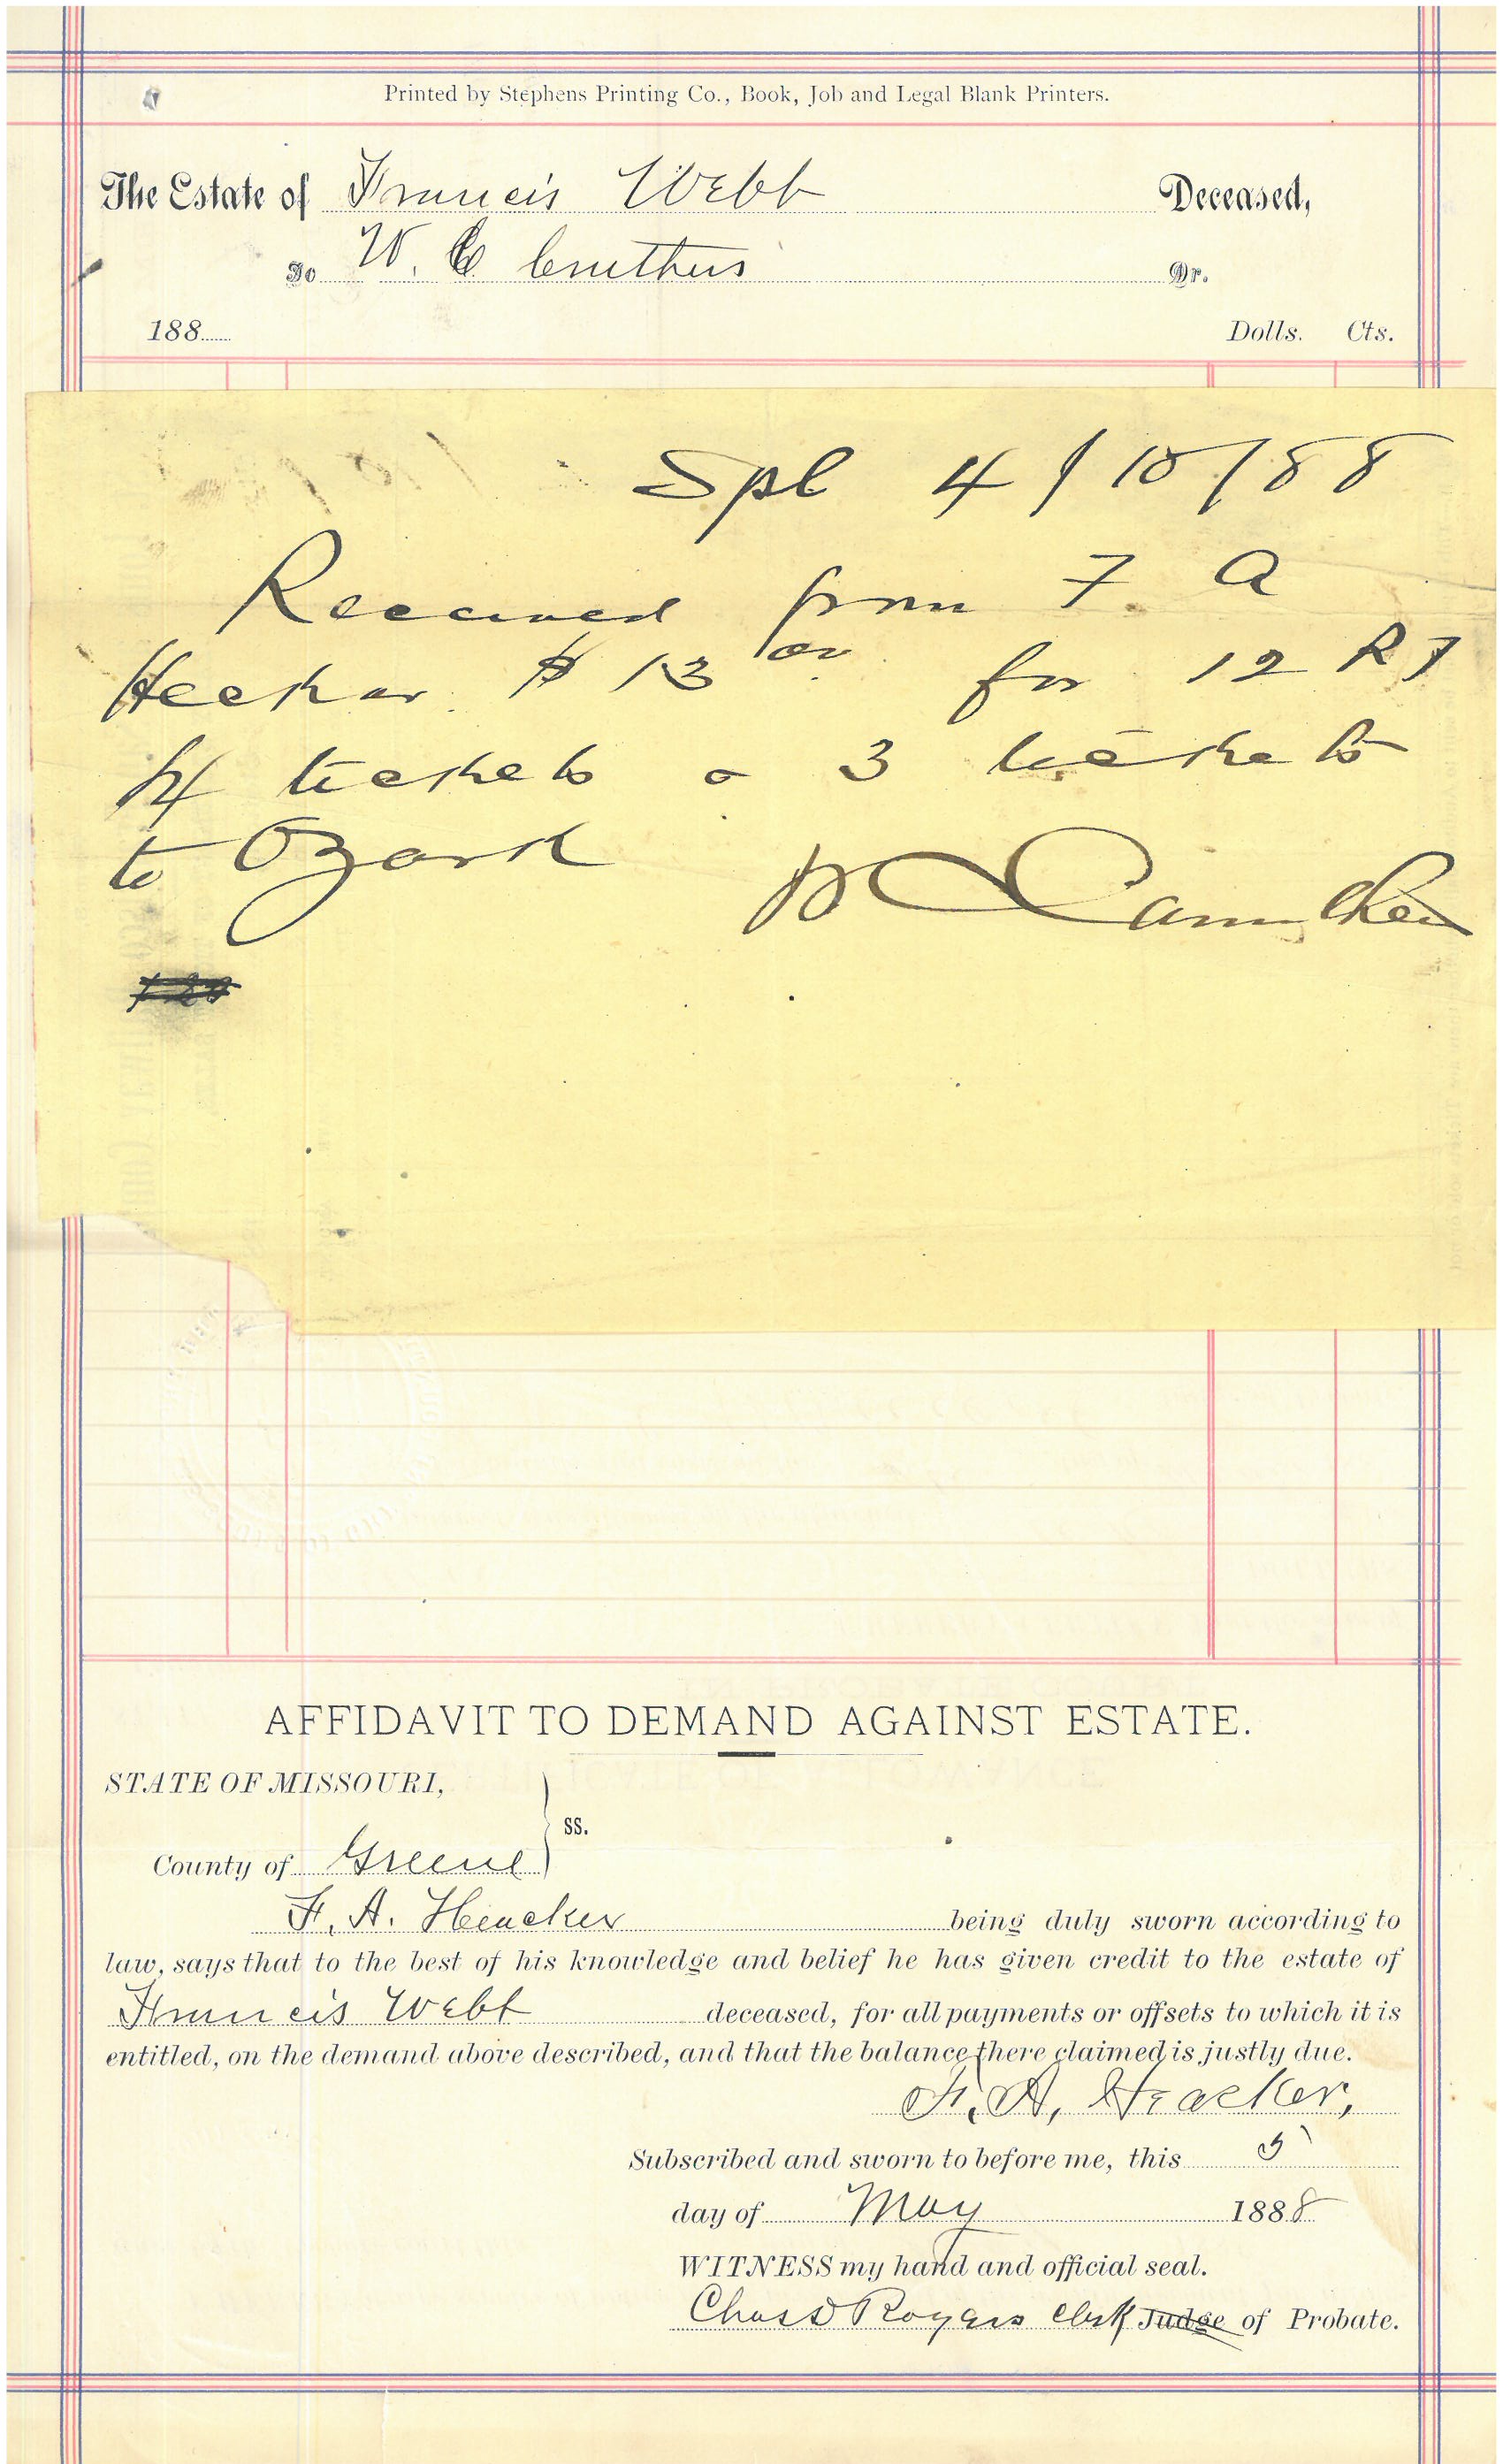 Printed by Stephens Printing Co., Book, Job and Legal Blank Printers.
The Estate of Francis Webb Deceased,
To W. C Cruthers Dr.
188 Dolls. Cts.
Spl 4/10/88
Received from F. A
Heacker $13 for 12 R T
tickets 3 tickets
to Ozark
AFFIDAVIT TO DEMAND AGAINST ESTATE.
STATE OF MISSOURI,
ss.
County of Greene
F. A. Heacker being duly sworn according to
law, says that to the best of his knowledge and belief he has given credit to the estate of
Francis Webb deceased, for all payments or offsets to which it is
entitled, on the demand above described, and that the balance there claimed is justly due.
F. A. Heacker,
Subscribed and sworn to before me, this 5
day of May 1888
WITNESS my hand and official seal.
Chas D Rogers Clerk Judge of Probate.